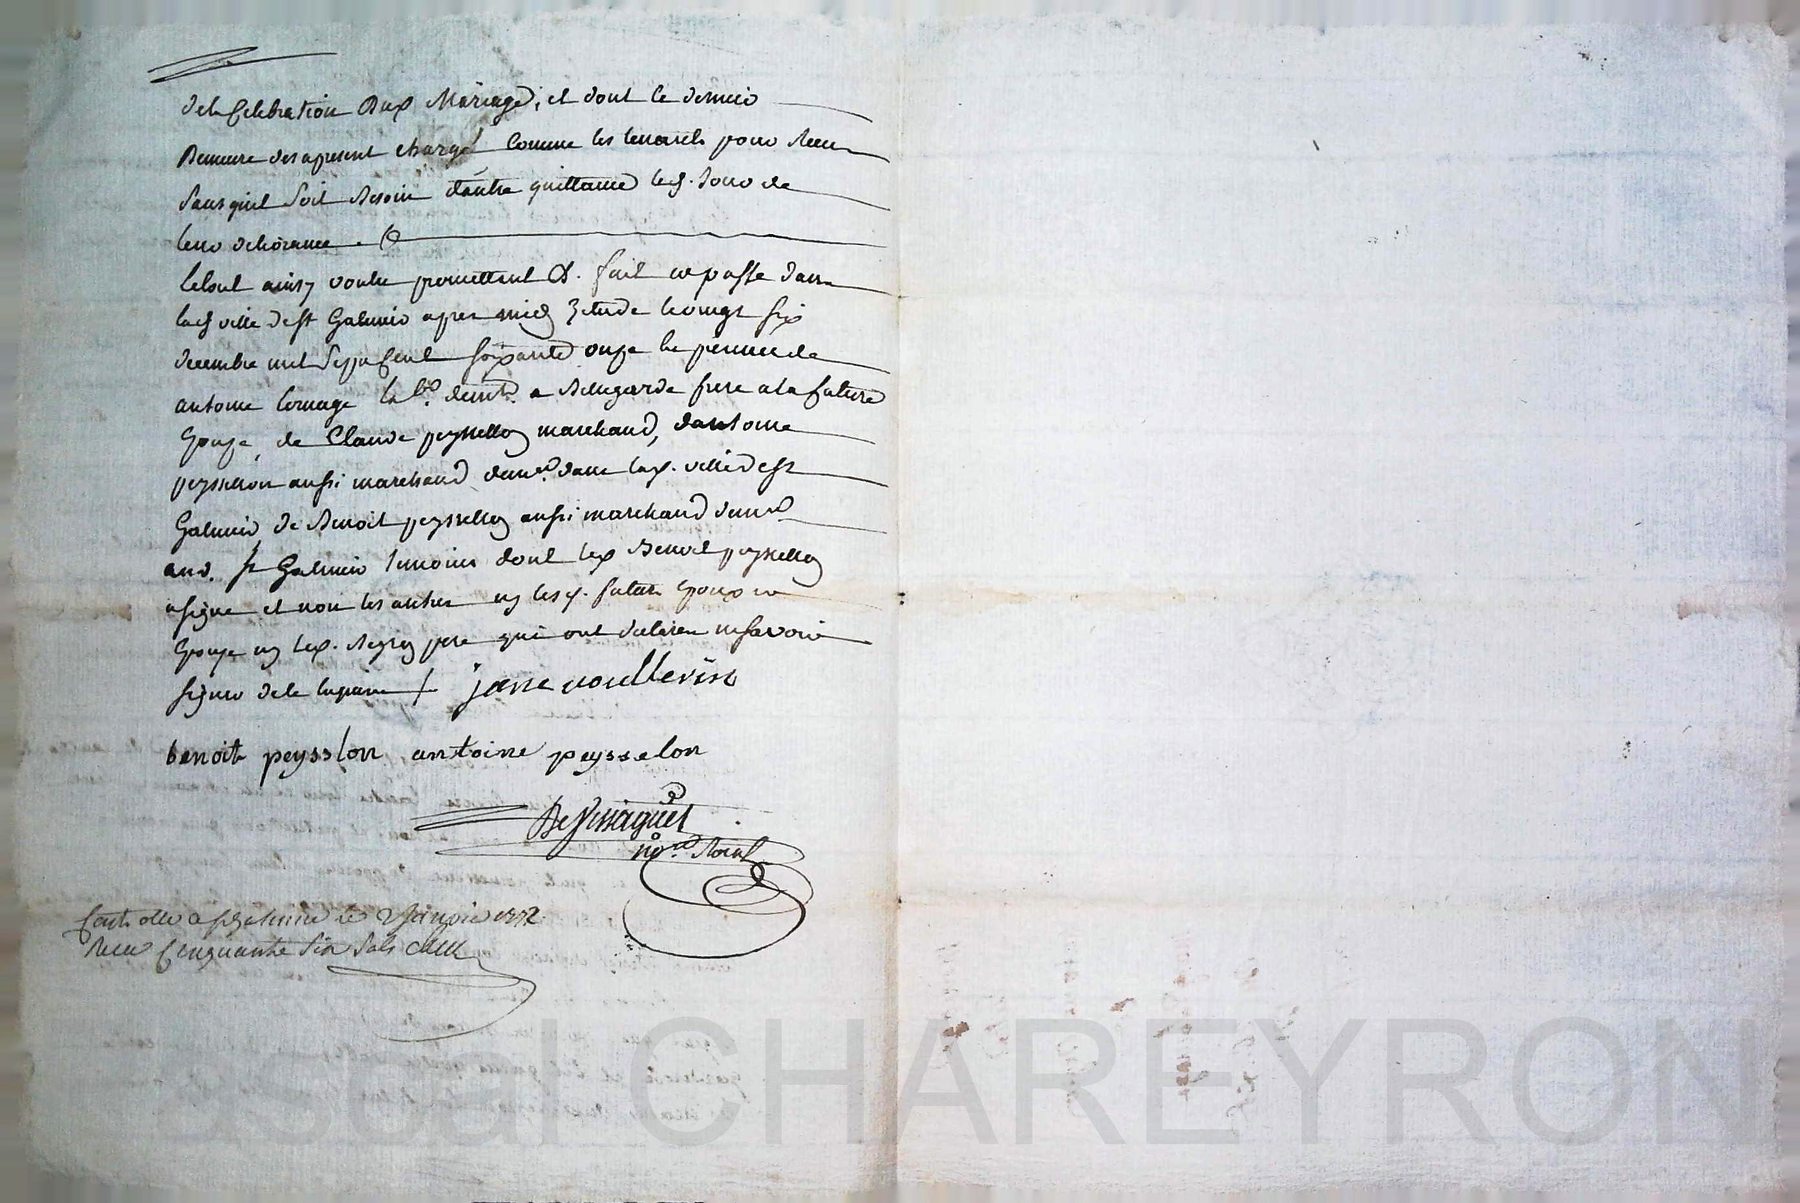 de la Celebration Dud Mariage, et dont le dernier
Demeure des apresent chargé Comme les tenant pour Receu
Sans quil Soit Besoin dautre quittance led. Jour de
leur delivrance
le tout ainsy voulu promettent &. fait et passé dans
lad ville de st Galmier apres midy Etude le vingt six
decembre mil Sept Cent soixante onze en presence de
antoine labr. demt. a Bellegarde frere a la future
Epouse, de Claude peyssellon marchand, dantoine
peyssellon aussi marchand demt. dans lad. ville de st
Galmier, de Benoit peyssellon aussi marchand demt
aud. st Galmier temoins dont led Benoit peyssellon
a signé et non les autres ny lesd. futurs Epoux et
Epouse ny led. pere qui ont declaré ne savoir
signer de ce
benoit peysslon antoine peysselon
nore. Roial
Controllé a st Galmier le 2 Janvier 1772
Receu Cinquante Six Sols
ascal CHAREYRON